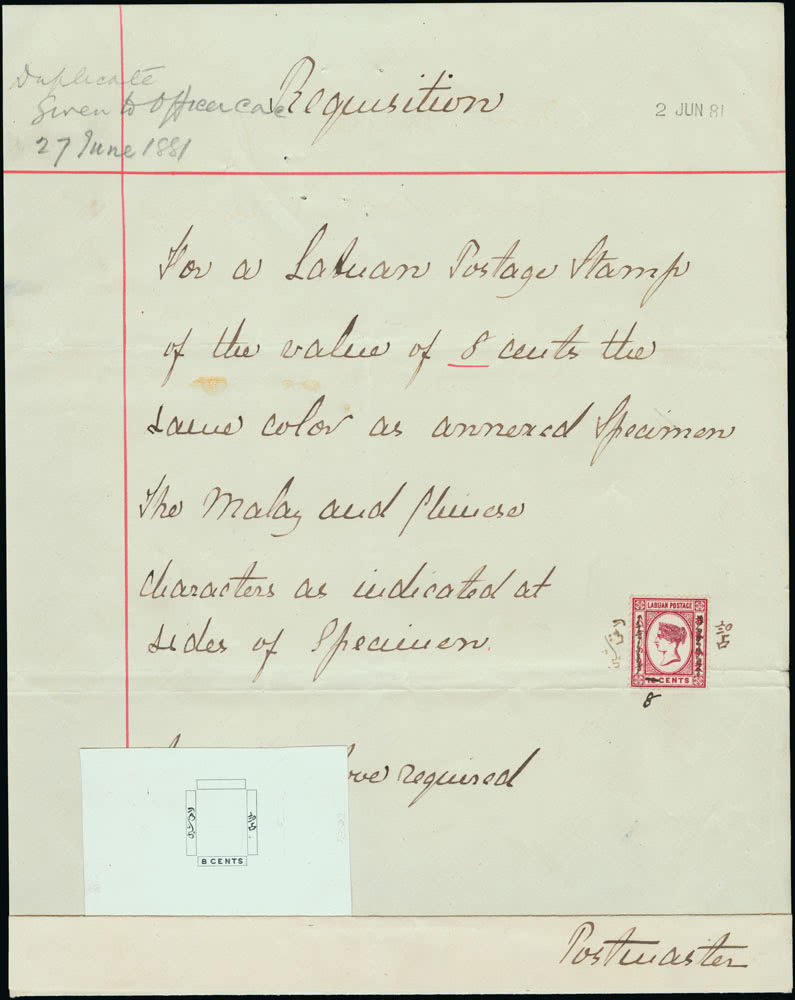 Duplicate
Given to Officer
27 June 1881
Requisition
2 JUN 81
For a Labuan Postage Stamp
of the value of 8 cents the
same color as annexed Specimen
The Malay and Chinese
characters as indicated at
sides of Specimen.
LABUAN POSTAGE
CENTS
8
required
8 CENTS
Postmaster